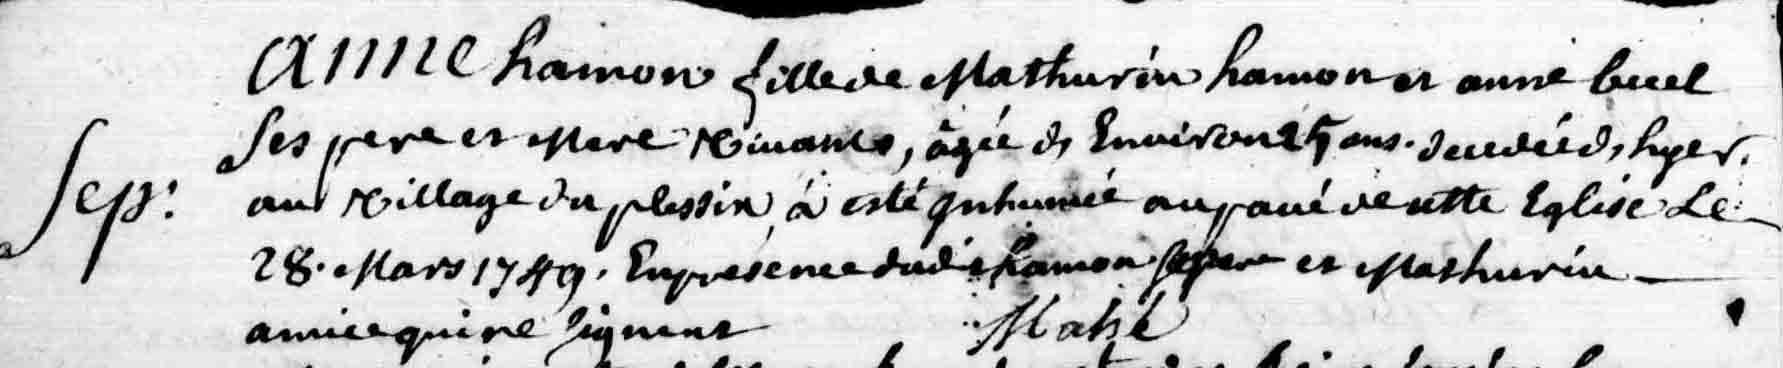 Anne hamon fille de Mathurin hamon et anne buel
Sep. ses pere et Mere vivants, âgée de Environ 25 ans. decedée hyer.
au village du plessix, à esté inhumée au pavé de cette Eglise Le
28. Mars 1749. En presence dudit hamon pere et Mathurin
amice qui ne signent Mahé